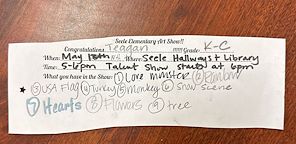 Seele Elementary Art Show!!
Congratulations Teagan Grade: K-C
When: May 18th Where: Seele Hallways + Library
Time: 5-6pm Talent Show starts at 6pm
What you have in the Show: ① Love monster ②
③ USA Flag ④ Turkey ⑤ Monkey ⑥ Snow scene
⑦ Hearts ⑧ Flowers ⑨ tree